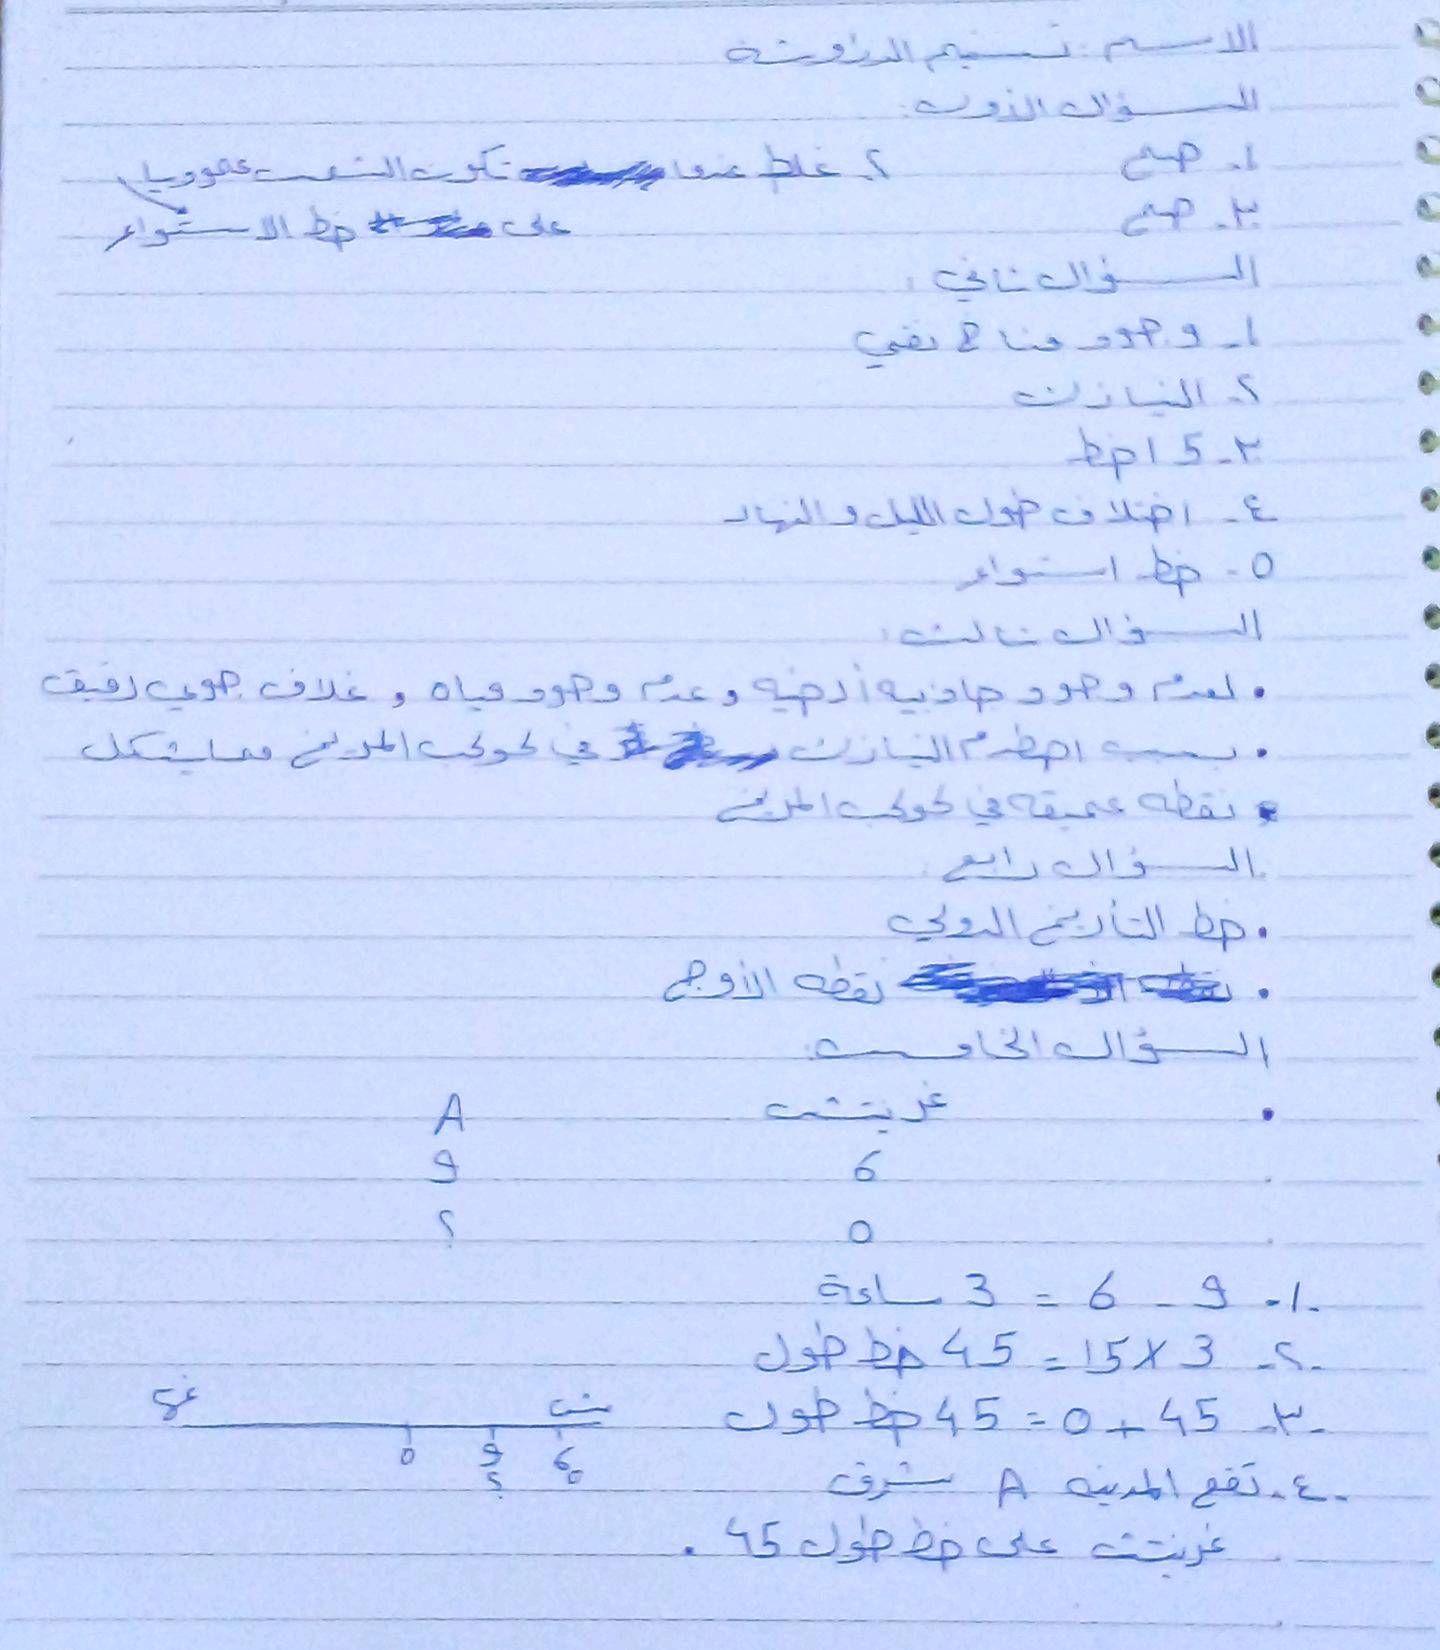 الاسم : تسنيم الدراوشة
السؤال الأول:
١. صح ٢. غلط عندما تكون الشمس عموديا
٣. صح على خط الاستواء
السؤال ثاني :
١. وجود مناخ نقي
٢. النيازك
٣. 15 خط
٤. اختلاف طول الليل والنهار
٥. خط استواء
السؤال ثالث:
• لعدم وجود جاذبيه أرضيه وعدم وجود مياه وغلاف جوي رقيق
• بسبب احطرم النيازك في كوكب المريخ مما يشكل
• نقطه عميقه في كوكب المريخ
السؤال رابع
• خط التأريخ الدولي
• نقطه الأوج
السؤال الخامس:
• غرينتش A
6 9
0 ؟
١. 9 - 6 = 3 ساعة
٢. 3 × 15 = 45 خط طول
٣. 45 + 0 = 45 خط طول
غرب
0 9 6
؟ 0
٤. تقع المدينه A شرق
غرينتش على خط طول 45 .